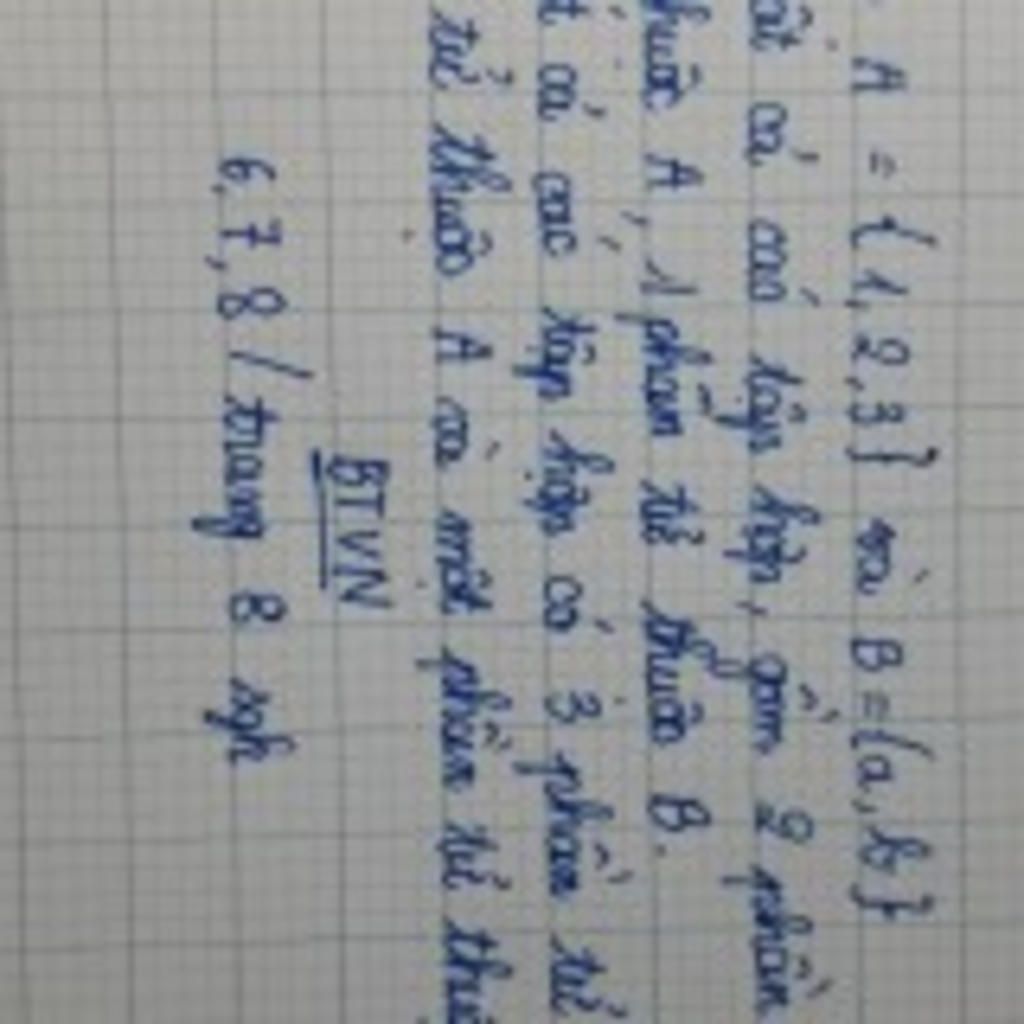 A = {1, 2, 3} và B = {a, b}
cả các tập hợp, gồm 2 phần
A, 1 phần tử thuộc B.
cả các tập hợp có 3 phần tử
tử thuộc A và một phần tử
BTVN
6, 7, 8 / trang 8 sgk